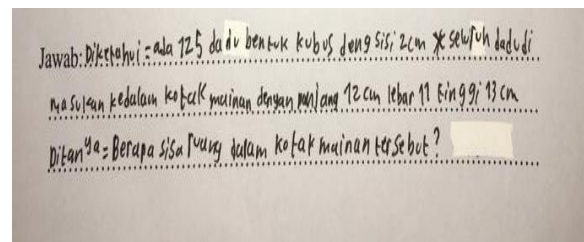 Jawab: Diketahui = ada 125 dadu bentuk kubus deng sisi 2cm * seluruh dadu di
masukan kedalam kotak mainan dengan panjang 12 cm lebar 11 tinggi 13 cm
Ditanya = Berapa sisa ruang dalam kotak mainan tersebut?